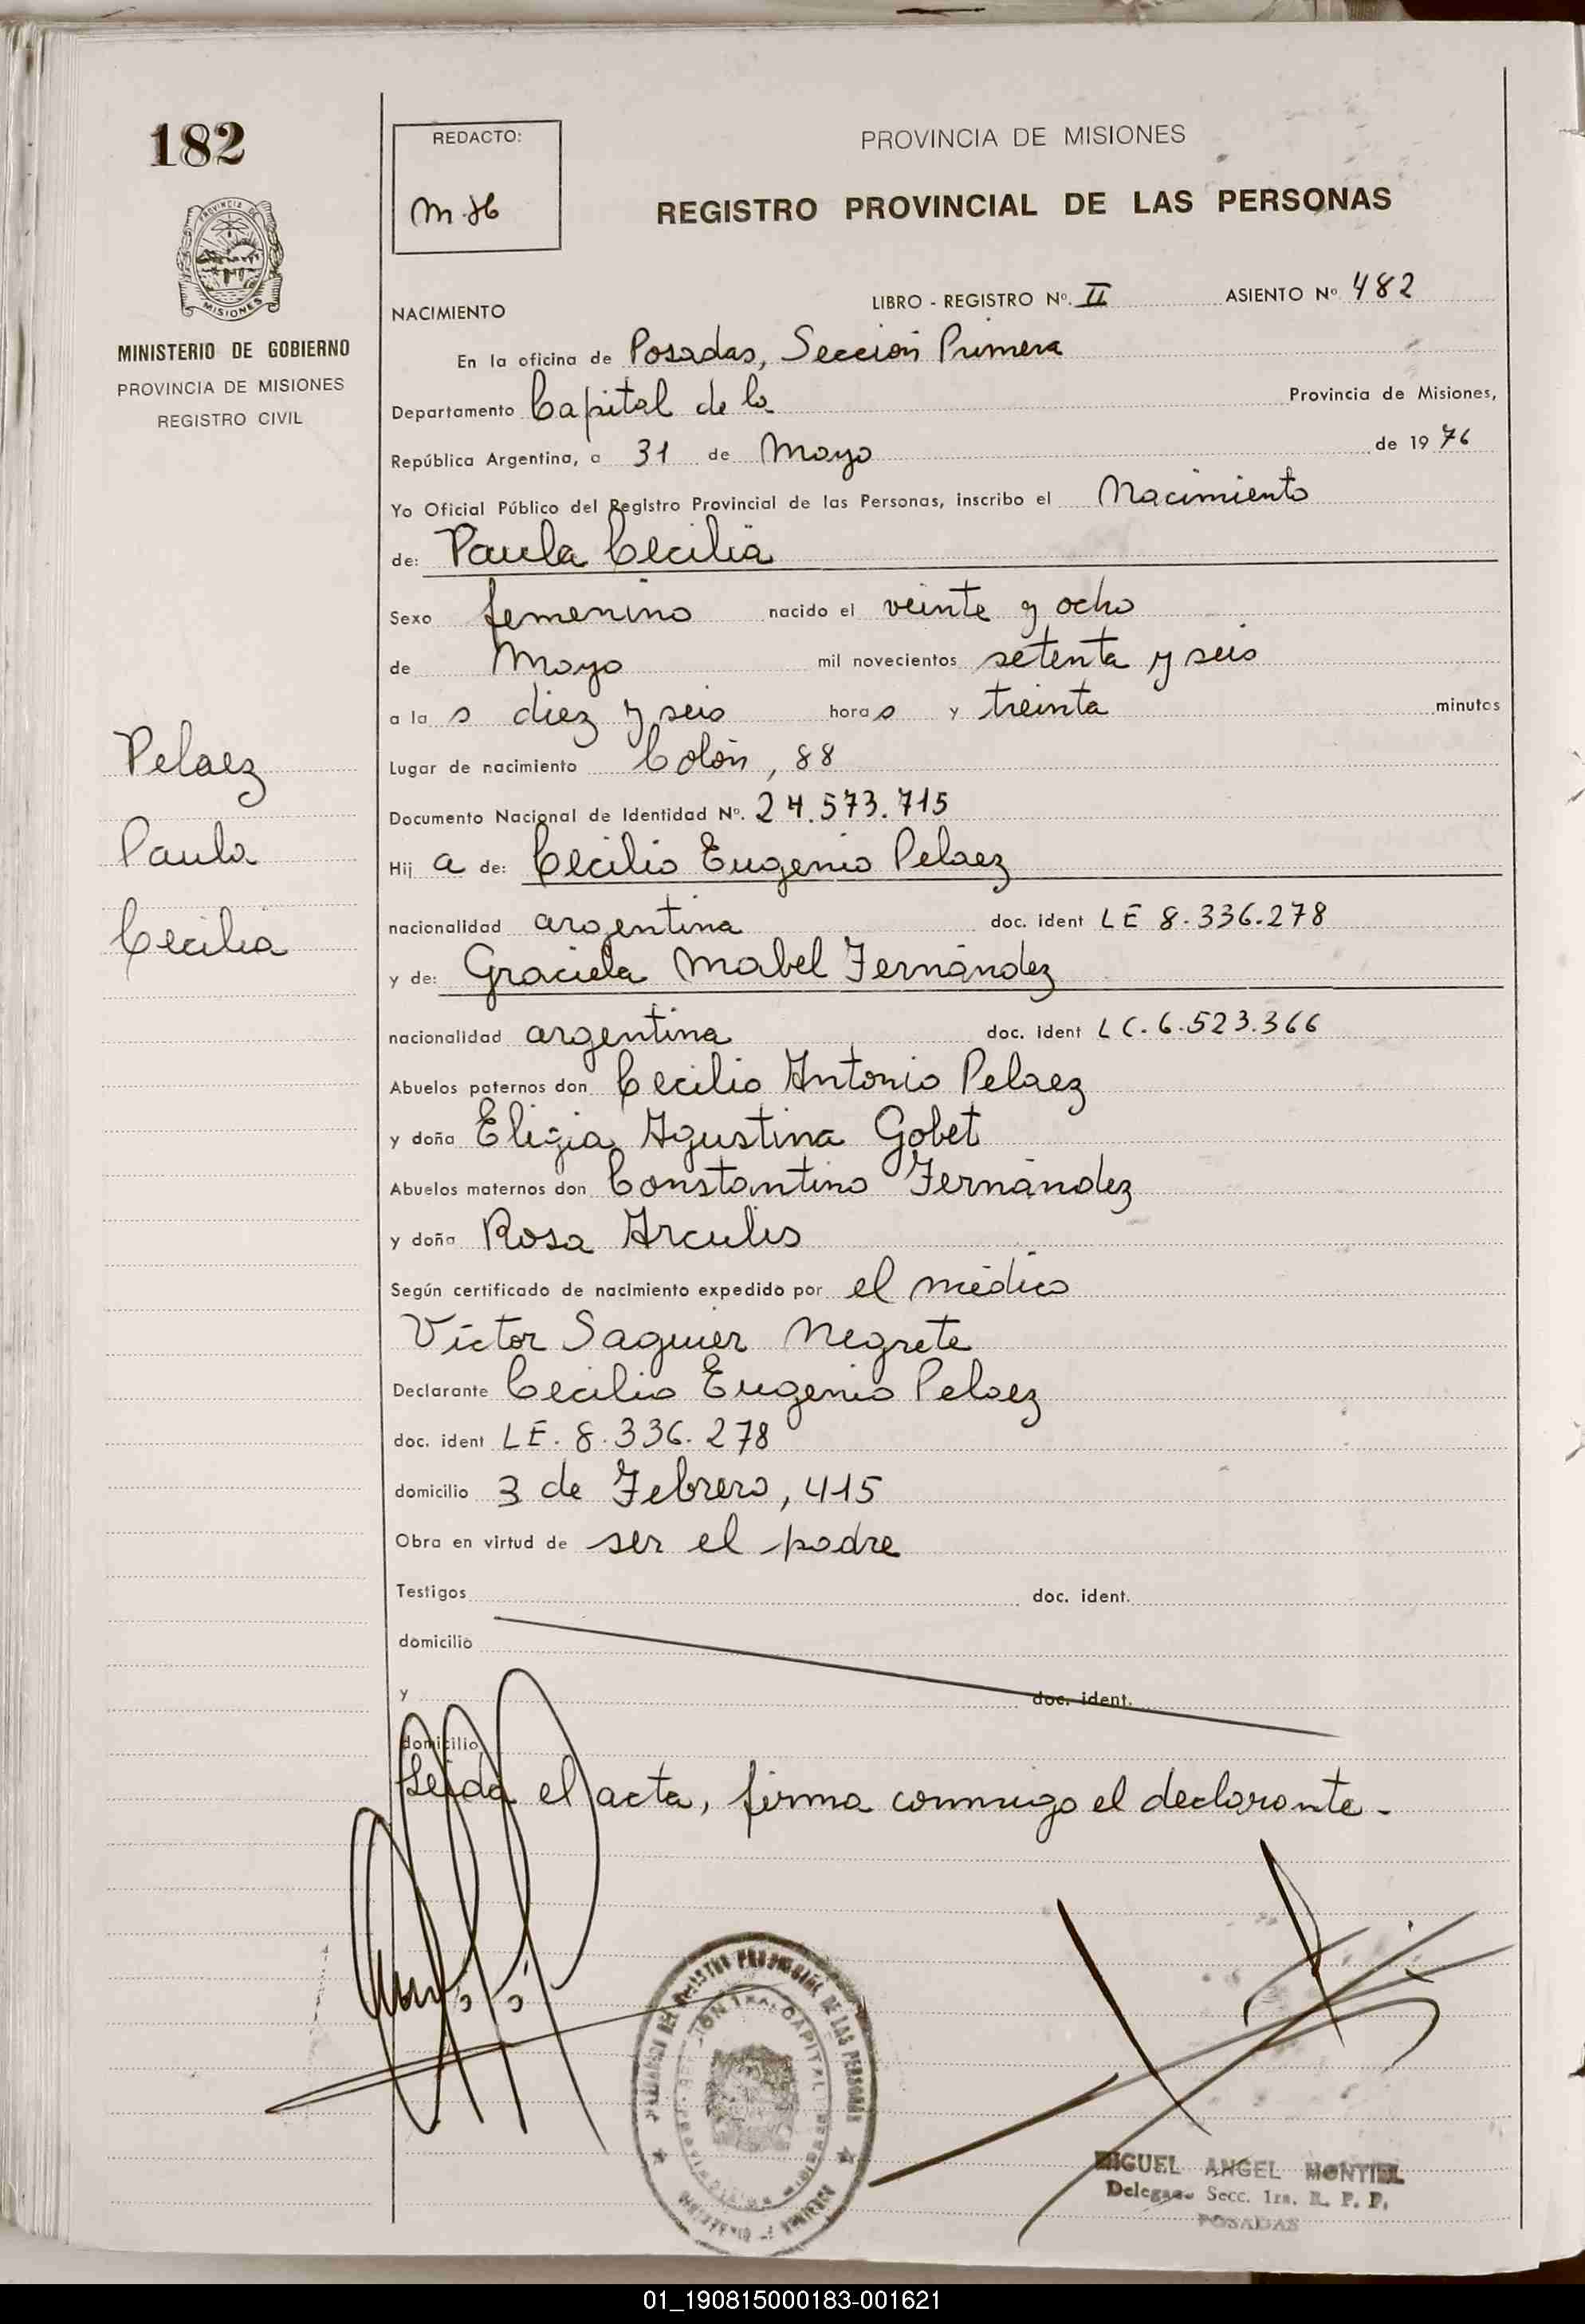 182
REDACTO:
PROVINCIA DE MISIONES
REGISTRO PROVINCIAL DE LAS PERSONAS
MISIONES
MINISTERIO DE GOBIERNO
PROVINCIA DE MISIONES
REGISTRO CIVIL
NACIMIENTO
LIBRO - REGISTRO Nº. II ASIENTO Nº 482
En la oficina de Posadas, Sección Primera
Departamento Capital de la Provincia de Misiones,
República Argentina, a 31 de Mayo de 1976
Yo Oficial Público del Registro Provincial de las Personas, inscribo el Nacimiento
de: Paula Cecilia
Sexo femenino nacido el veinte y ocho
de Mayo mil novecientos setenta y seis
a la s diez y seis hora s y treinta minutos
Pelaez
Paula
Cecilia
Lugar de nacimiento Colón, 88
Documento Nacional de Identidad Nº. 24.573.715
Hij a de: Cecilio Eugenio Pelaez
nacionalidad argentina doc. ident LE 8.336.278
y de: Graciela Mabel Fernández
nacionalidad argentina doc. ident LC. 6.523.366
Abuelos paternos don Cecilio Antonio Pelaez
y doña Eligia Agustina Gobet
Abuelos maternos don Constantino Fernández
y doña Rosa Arculis
Según certificado de nacimiento expedido por el médico
Víctor Saguier Negrete
Declarante Cecilio Eugenio Pelaez
doc. ident LE. 8.336.278
domicilio 3 de Febrero, 415
Obra en virtud de ser el padre
Testigos doc. ident.
domicilio
y doc. ident.
domicilio
Leída el acta, firma conmigo el declarante.
MIGUEL ANGEL MONTIEL
Delegado Secc. 1ra. R. P. P.
POSADAS
01_190815000183-001621